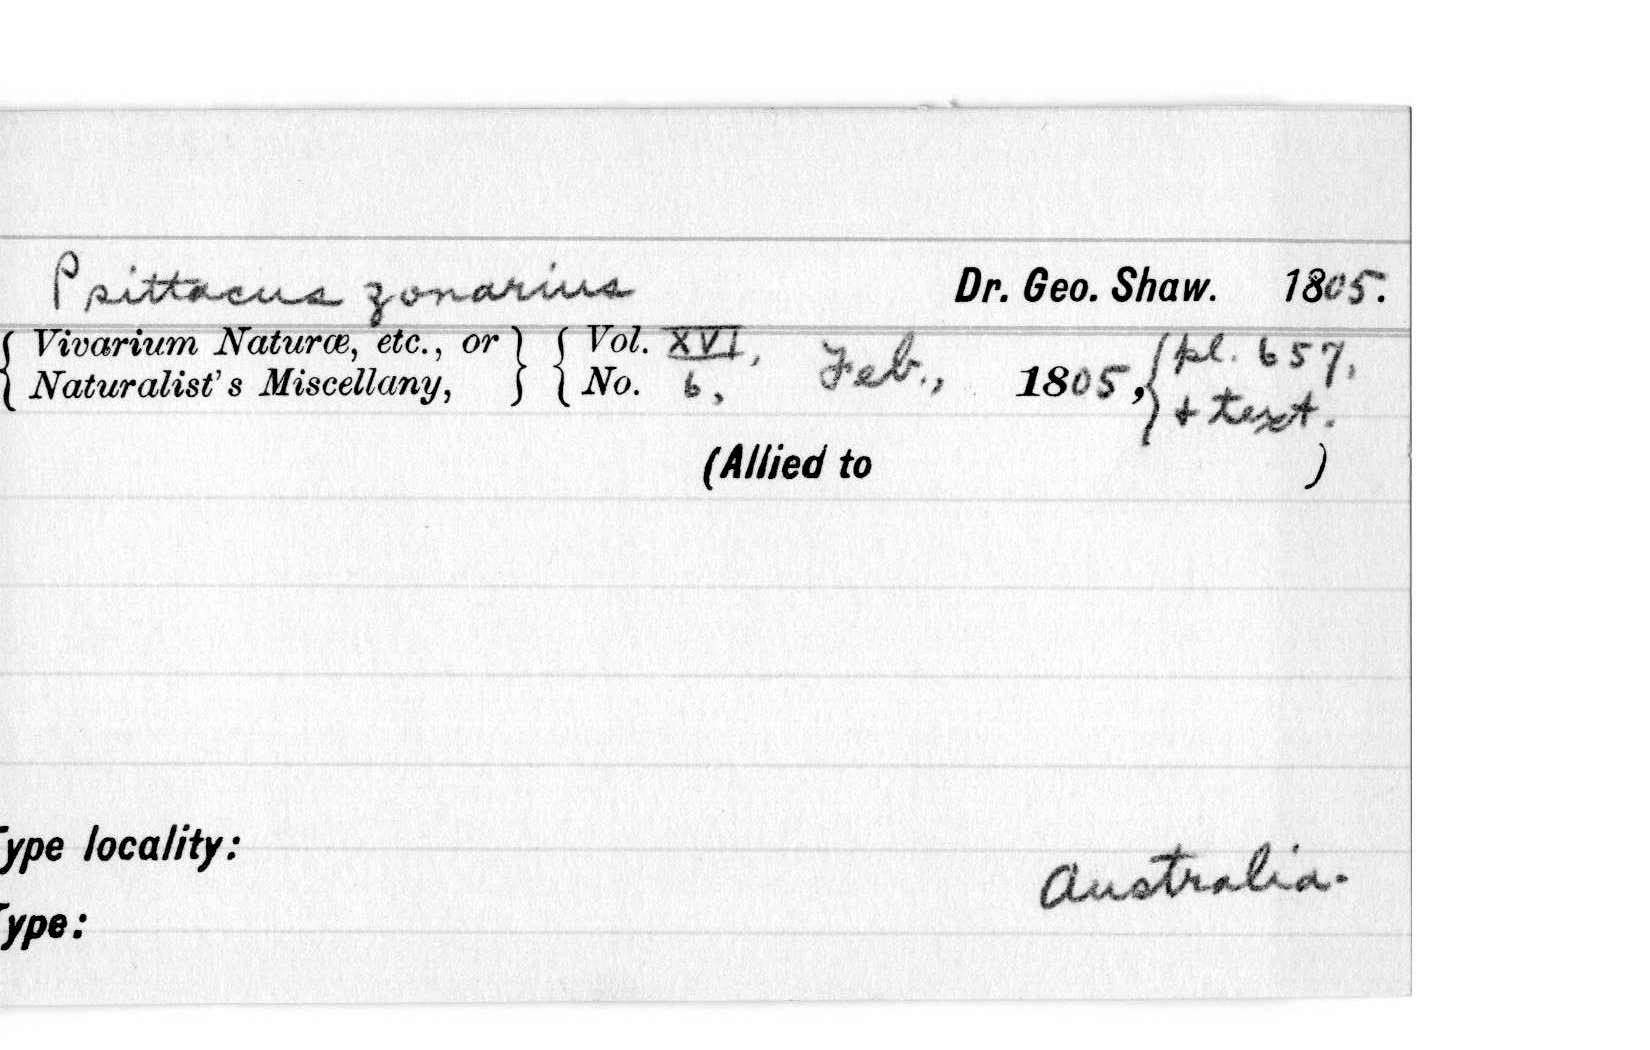 Psittacus zonarius Dr. Geo. Shaw. 1805.
{ Vivarium Naturæ, etc., or } { Vol. XVI, Feb., 1805, { pl. 657,
{ Naturalist's Miscellany, } { No. 6, + text.
(Allied to )
Type locality: Australia.
Type: